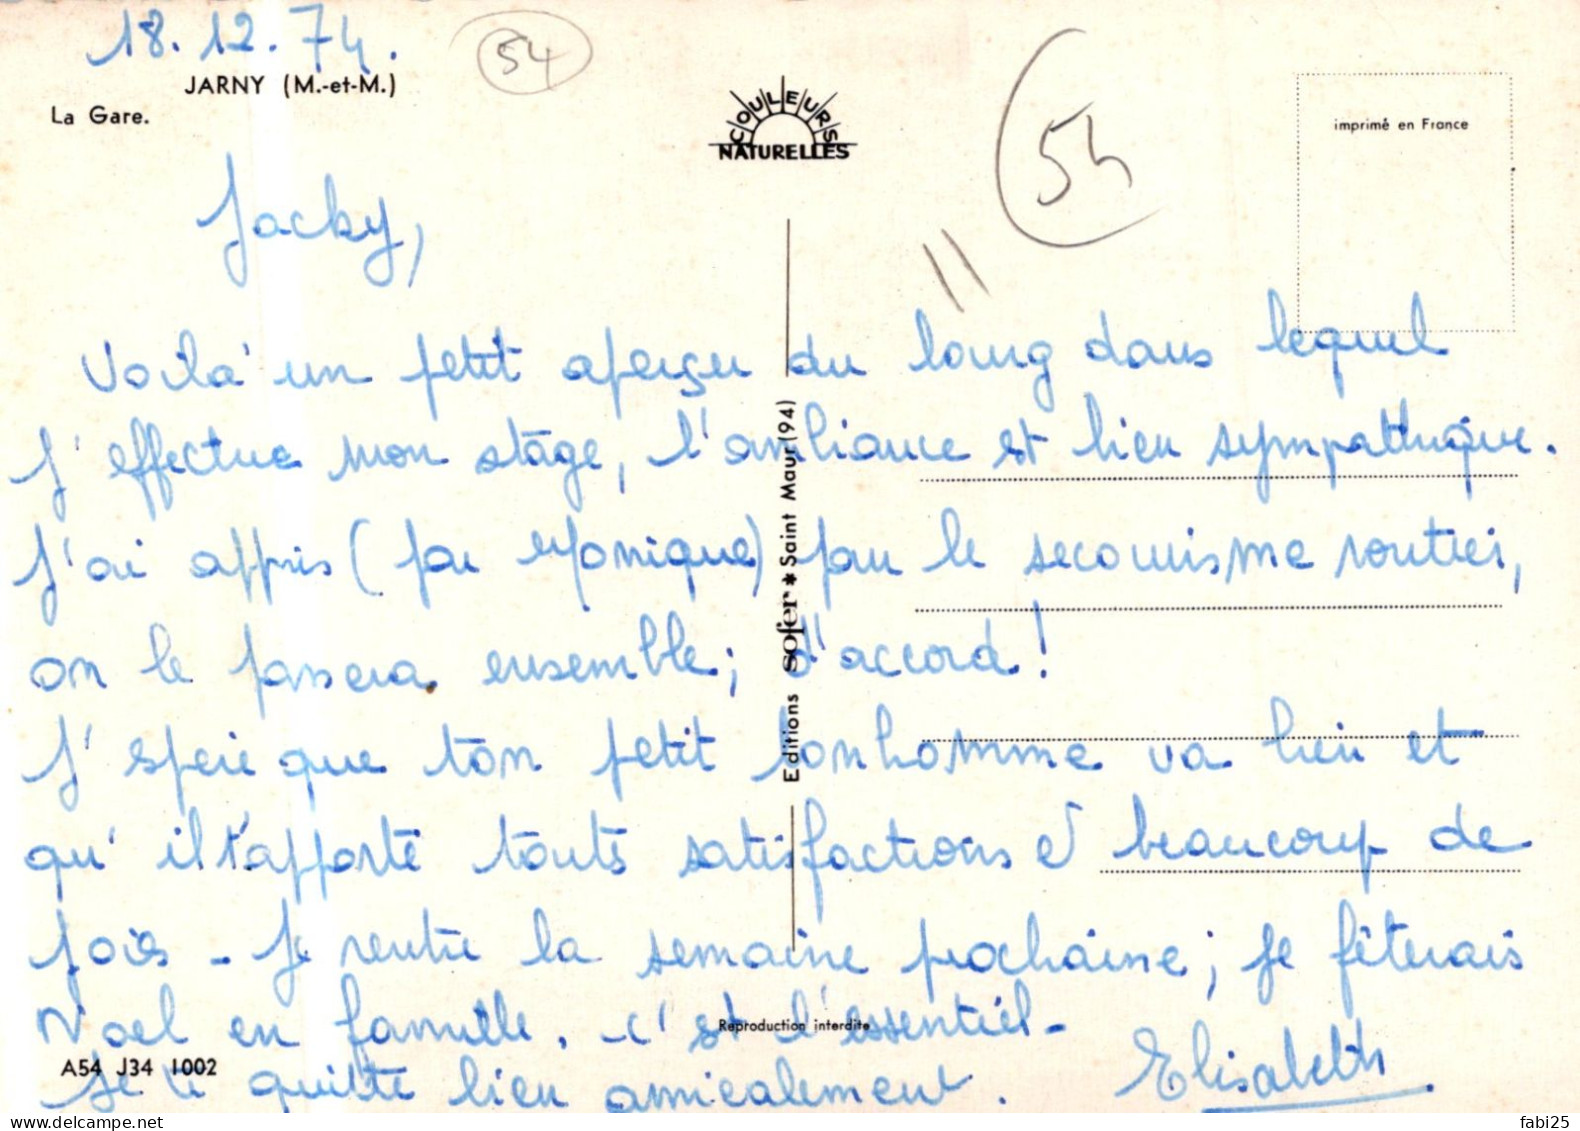 18.12.74.
54
JARNY (M.-et-M.)
La Gare.
COULEURS
NATURELLES
54
imprimé en France
Jacky,
Voilà un petit aperçu du bourg dans lequel
j'effectue mon stage, l'ambiance est bien sympathique.
J'ai appris (par Monique) pour le secourisme routier,
on le passera ensemble; d'accord!
J'espère que ton petit bonhomme va bien et
qu'il t'apporte toute satisfactions et beaucoup de
joies - Je rentre la semaine prochaine; je fêterais
Noel en famille. - c'est l'essentiel -
Je te quitte bien amicalement. Elisabeth
Editions sofer * Saint Maur (94)
Reproduction interdite
A54 J34 1002
fabi25